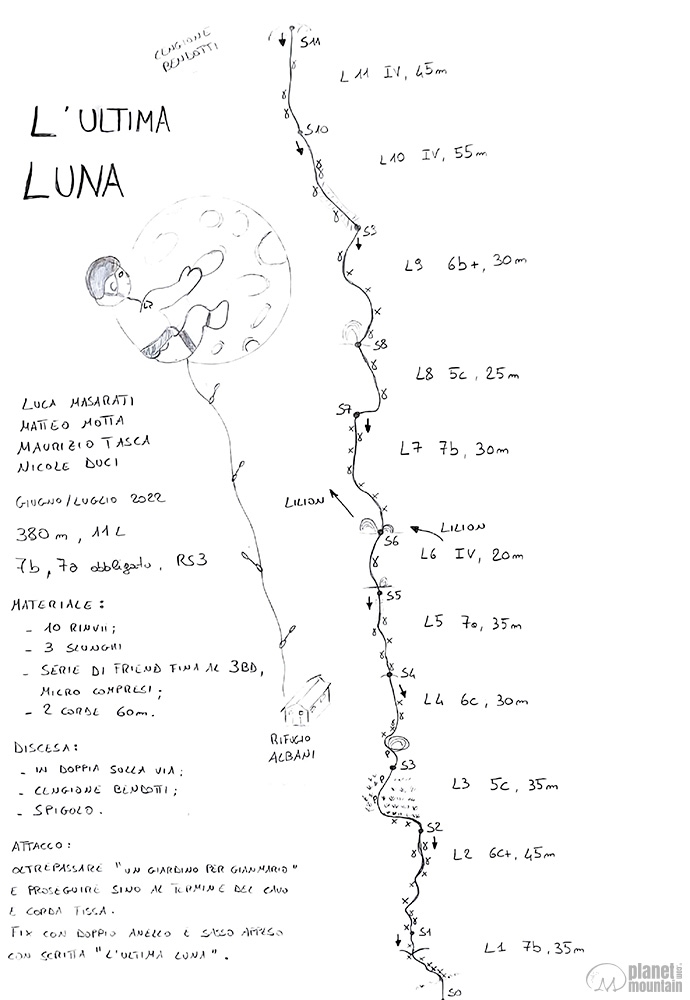 CENGIONE
BENDOTTI
L'ULTIMA
LUNA
S11
L11 IV, 45m
S10
L10 IV, 55m
S9
L9 6b+, 30m
S8
L8 5c, 25m
S7
L7 7b, 30m
LILION
LILION
S6
L6 IV, 20m
S5
L5 7a, 35m
S4
L4 6c, 30m
S3
L3 5c, 35m
S2
L2 6c+, 45m
S1
L1 7b, 35m
S0
LUCA MASARATI
MATTEO MOTTA
MAURIZIO TASCA
NICOLE DUCI
GIUGNO/LUGLIO 2022
380m, 11L
7b, 7a obbligato, RS3
MATERIALE:
- 10 RINVII;
- 3 SLUNGHI
- SERIE DI FRIEND FINA AL 3BD,
MICRO COMPRESI;
- 2 CORDE 60m.
RIFUGIO
ALBANI
DISCESA:
- IN DOPPIA SULLA VIA;
- CENGIONE BENDOTTI;
- SPIGOLO.
ATTACCO:
OLTREPASSARE "UN GIARDINO PER GIANMARIO"
E PROSEGUIRE SINO AL TERMINE DEL CAVO
E CORDA FISSA.
FIX CON DOPPIO ANELLO E SASSO APPESO
CON SCRITTA "L'ULTIMA LUNA".
planet
mountain
.com